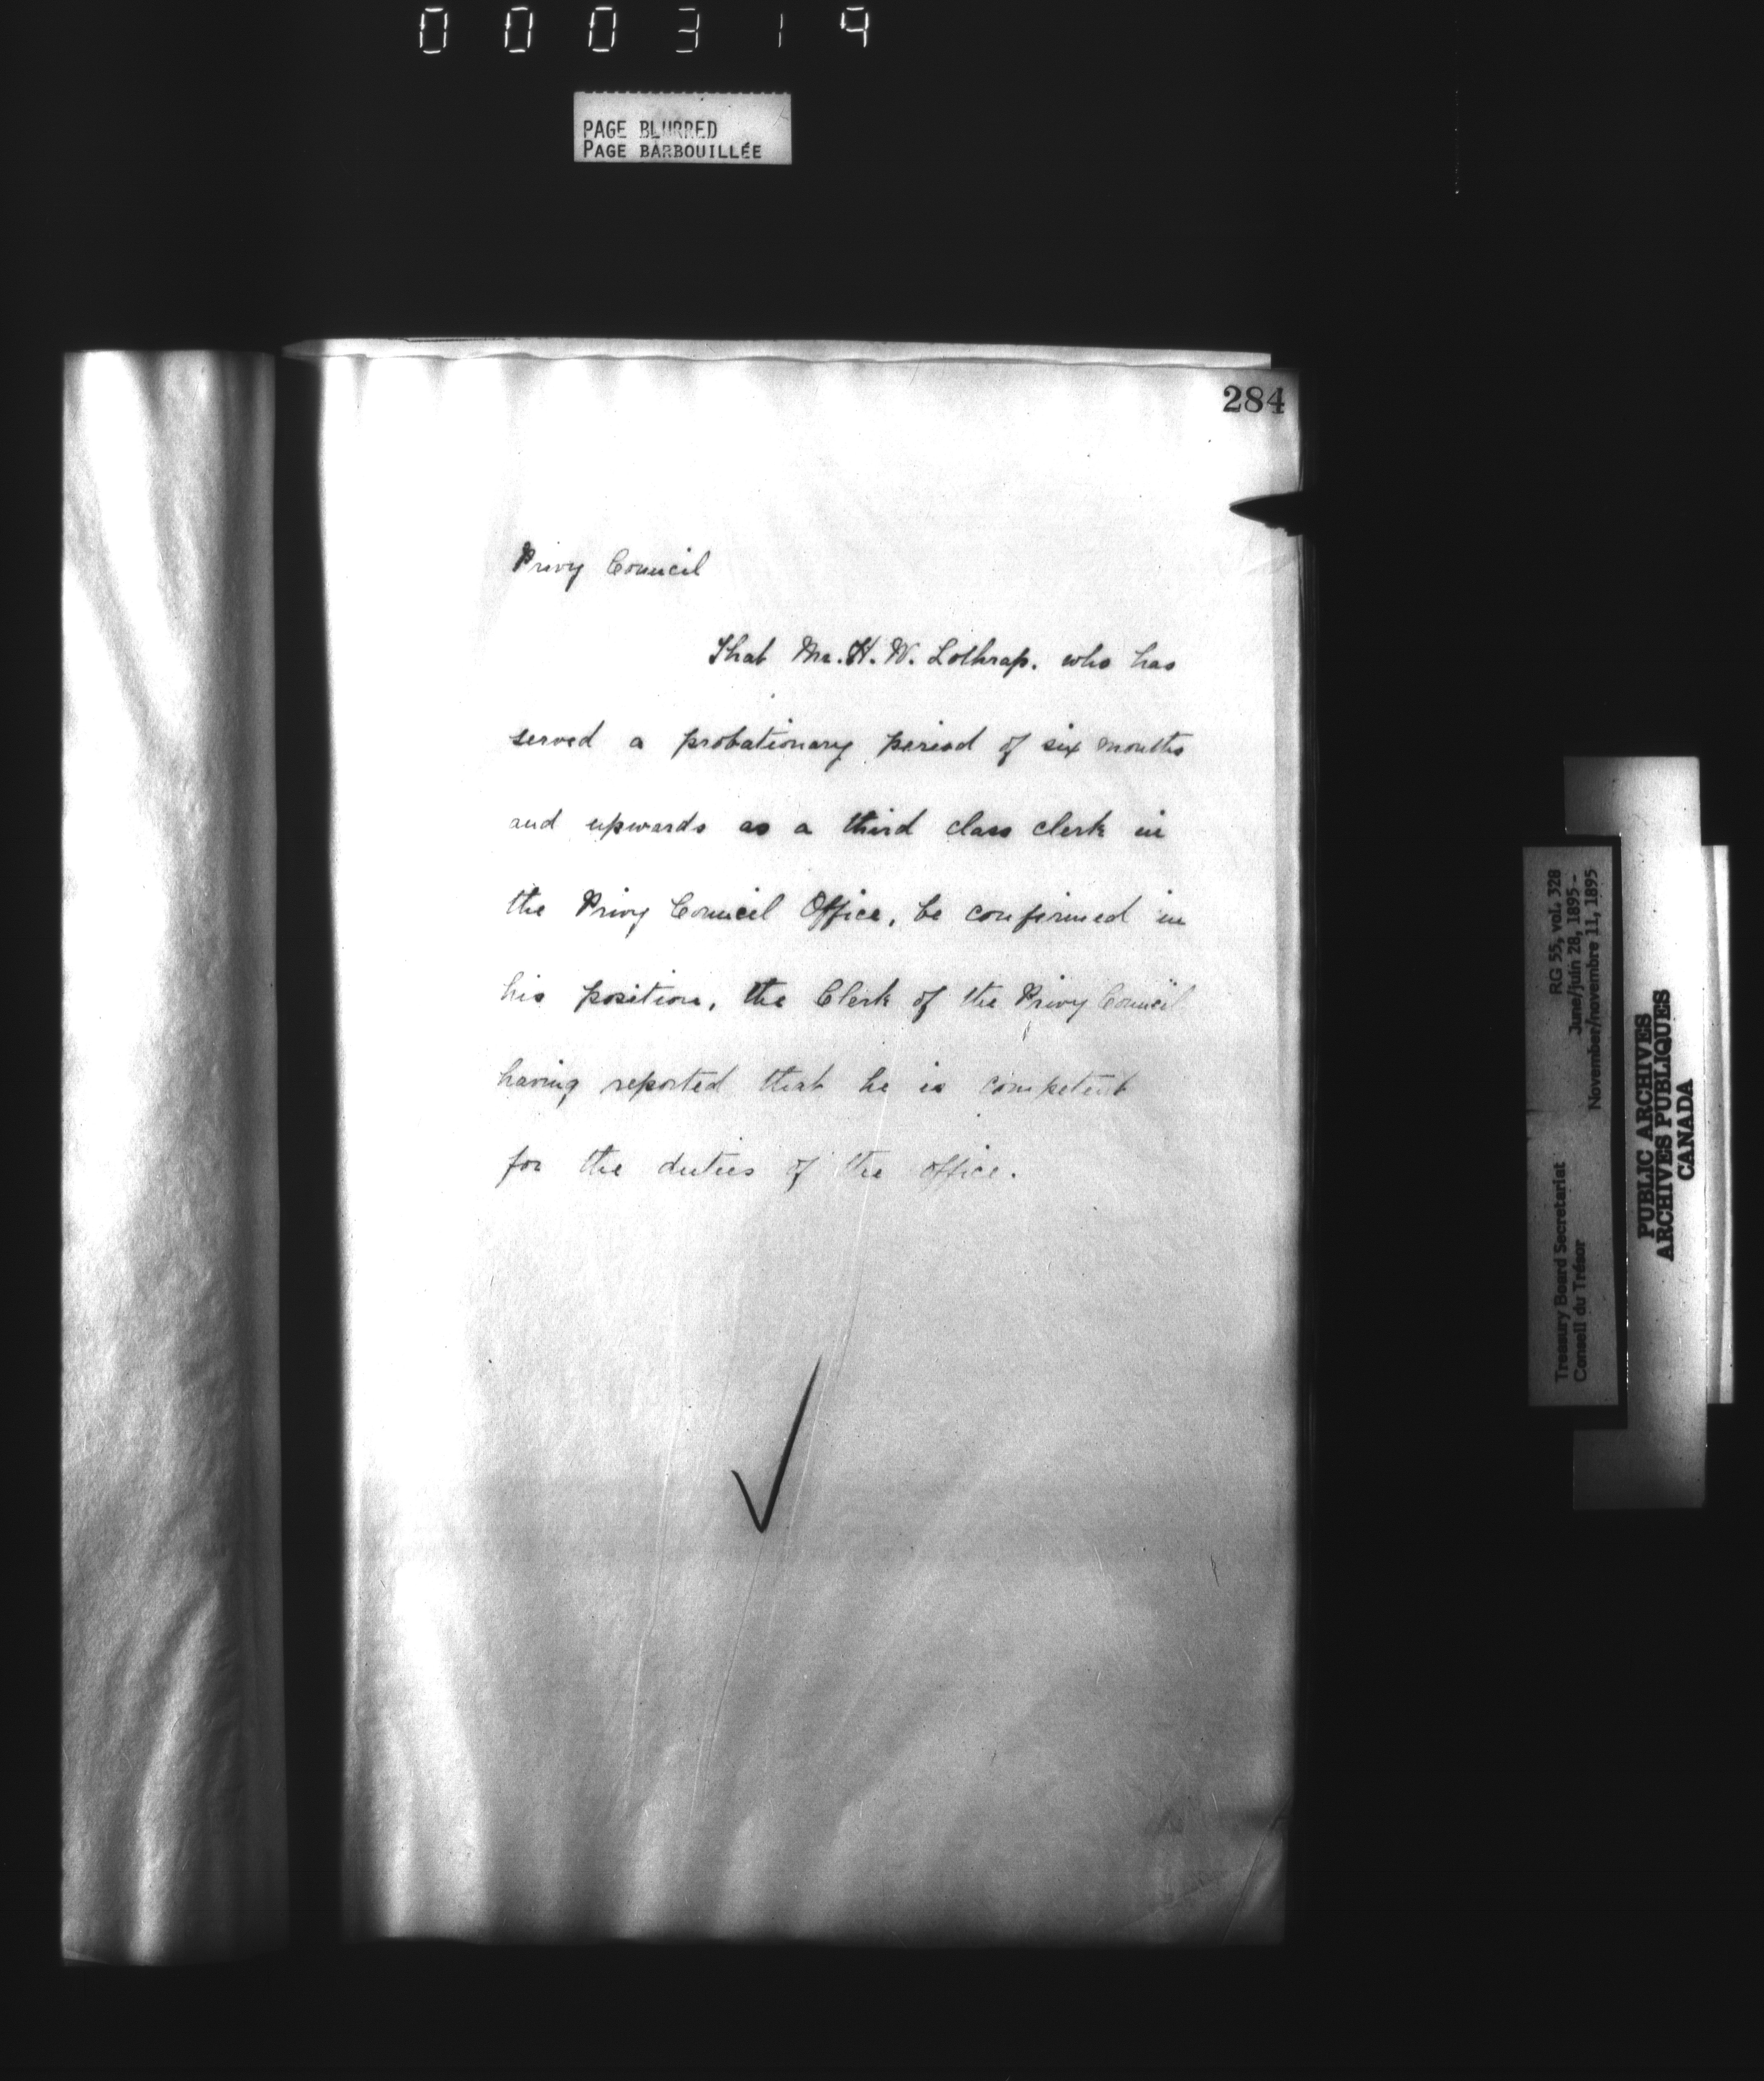 000319
PAGE BLURRED
PAGE BARBOUILLÉE
284
Privy Council
That Mr. H. W. Lothrap. who has
served a probationary period of six months
and upwards as a third class clerk in
the Privy Council Office, be confirmed in
his position, the Clerk of the Privy Council
having reported that he is competent
for the duties of the office.
Treasury Board Secretariat RG 55, vol. 328
Conseil du Trésor June/juin 28, 1895 -
November/novembre 11, 1895
PUBLIC ARCHIVES
ARCHIVES PUBLIQUES
CANADA